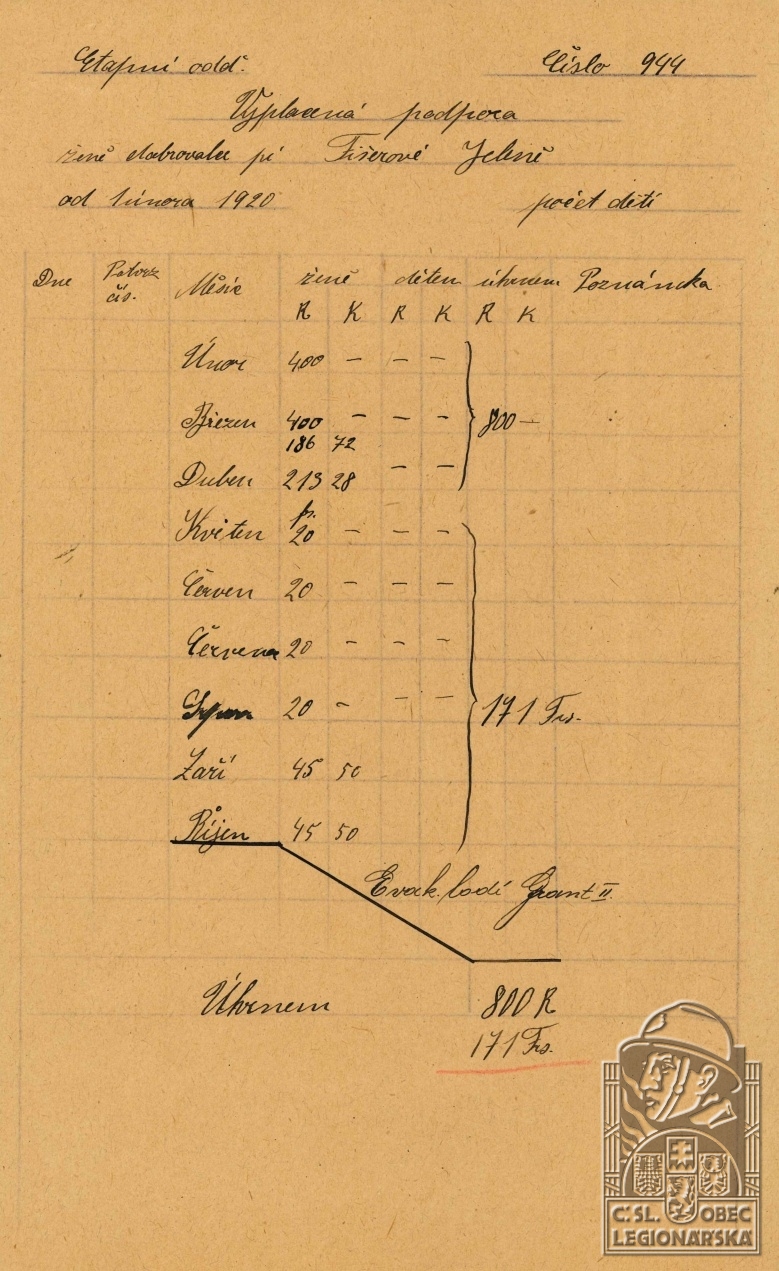 Etapní odd. Číslo 944
Vyplacená podpora
ženě dobrovolce pí Fišerové Jeleně
od února 1920 počet dětí
Dne Potvrz. čís. Měsíc ženě dětem úhrnem Poznámka
R K R K R K
Únor 400 — — —
Březen 400 — — — 800 —
186 72
Duben 213 28 — —
fr.
Květen 20 — — —
Červen 20 — — —
Červenec 20 — — —
Srpen 20 — — — 171 Frs.
Září 45 50
Říjen 45 50
Evak. lodí Grant II.
Úhrnem 800 R
171 Frs.
Č.SL. OBEC
LEGIONÁŘSKÁ